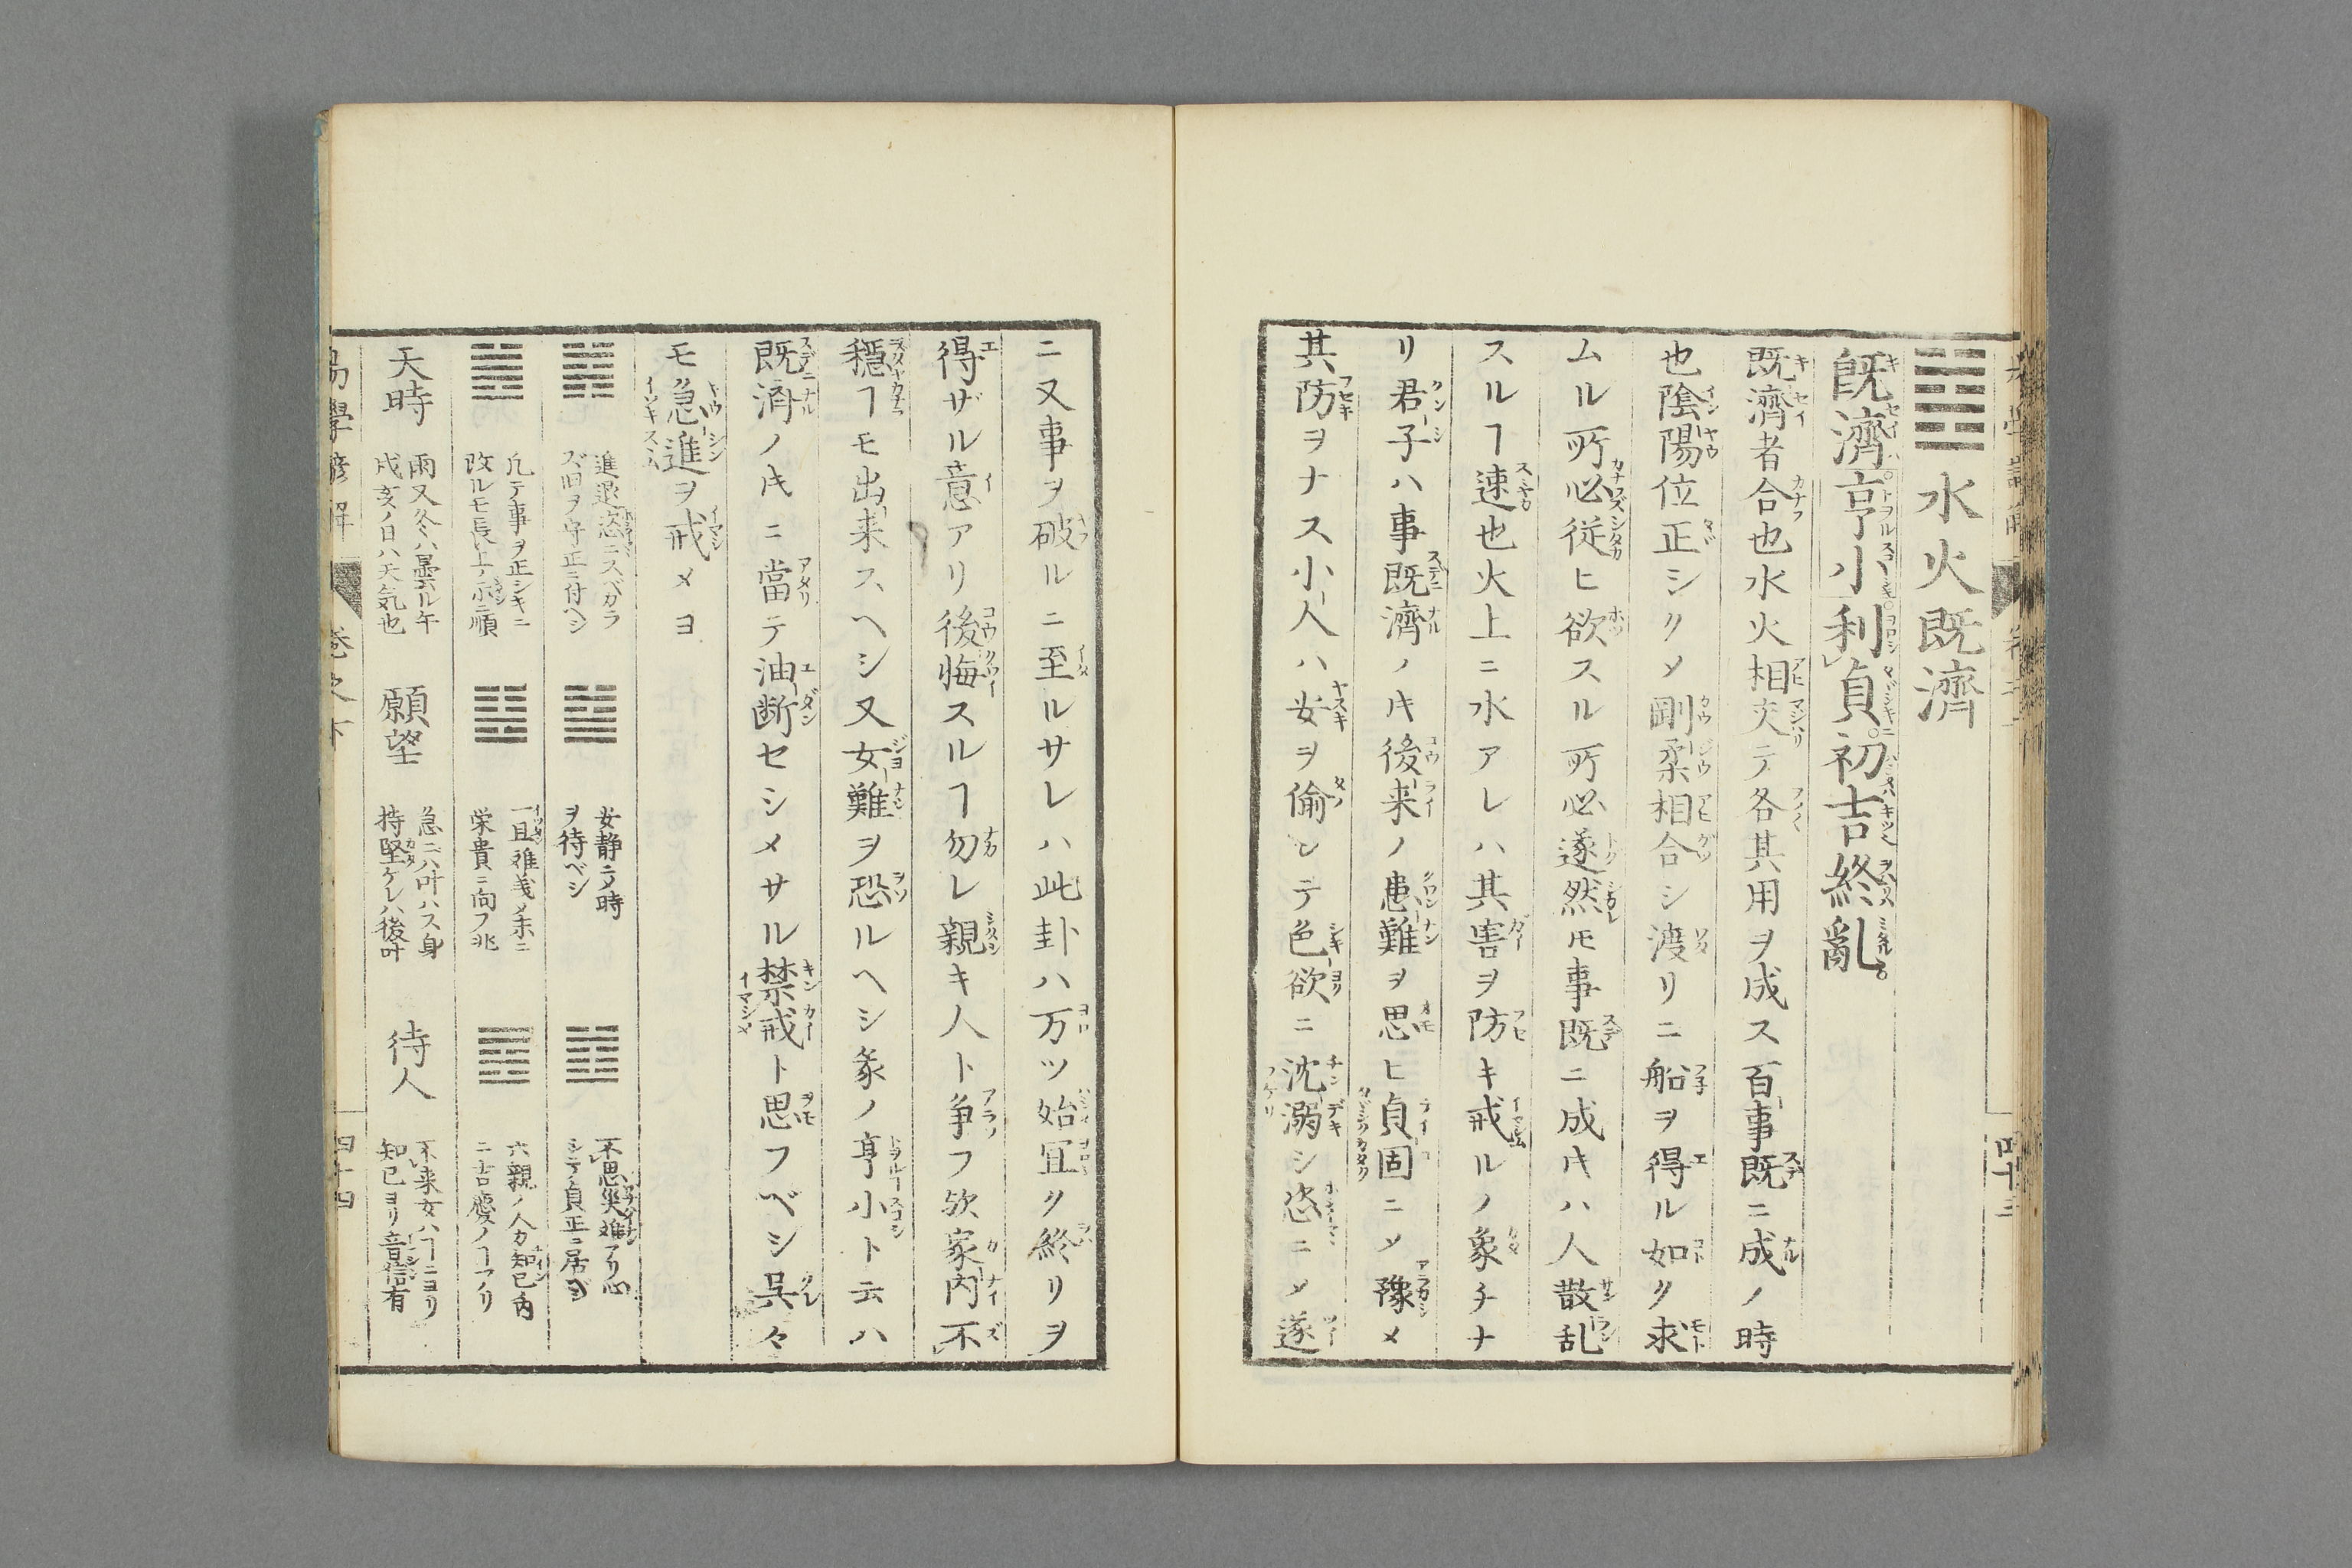 水火既済
既濟亨小利貞初吉終亂
既濟者合也水火相交テ各其用ヲ成ス百事既ニ成ノ時
也陰陽位正シクメ剛柔相合シ渡リニ船ヲ得ル如ク求
ムル所必従ヒ欲スル所必遂然モ事既ニ成キハ人散乱
スルヿ速也火上ニ水アレハ其害ヲ防キ戒ルノ象チナ
リ君子ハ事既濟ノキ後来ノ患難ヲ思ヒ貞固ニメ豫メ
其防ヲナス小人ハ安ヲ偷シテ色欲ニ沈溺シ恣ニメ遂
ニ又事ヲ破ルニ至ルサレハ此卦ハ万ツ始宜ク終リヲ
得ザル意アリ後悔スルヿ勿レ親キ人ト争フ欤家内不
穏ヿモ出来スヘシ又女難ヲ恐ルヘシ彖ノ亨小ト云ハ
既濟ノキニ當テ油断セシメサル禁戒ト思フベシ呉々
モ急進ヲ戒メヨ
進退恣ニスベカラ
ズ旧ヲ守正ニ付ヘシ
安静ニ乄時
ヲ待ベシ
不思災難アリ心
シテ貞正ニ居ベシ
凡テ事ヲ正シキニ
改ルモ長上ノ示ニ順
一旦難義ノ末ニ
栄貴ニ向フ兆
六親ノ人カ知已内
ニ吉慶ノヿアリ
天時
雨又冬ハ曇ル午
戌亥ノ日ハ天気也
願望
急ニハ叶ハス身
持堅ケレハ後叶
待人
不来女ハヿニヨリ
知已ヨリ音信有
易學
卷之下
四十四
四十三